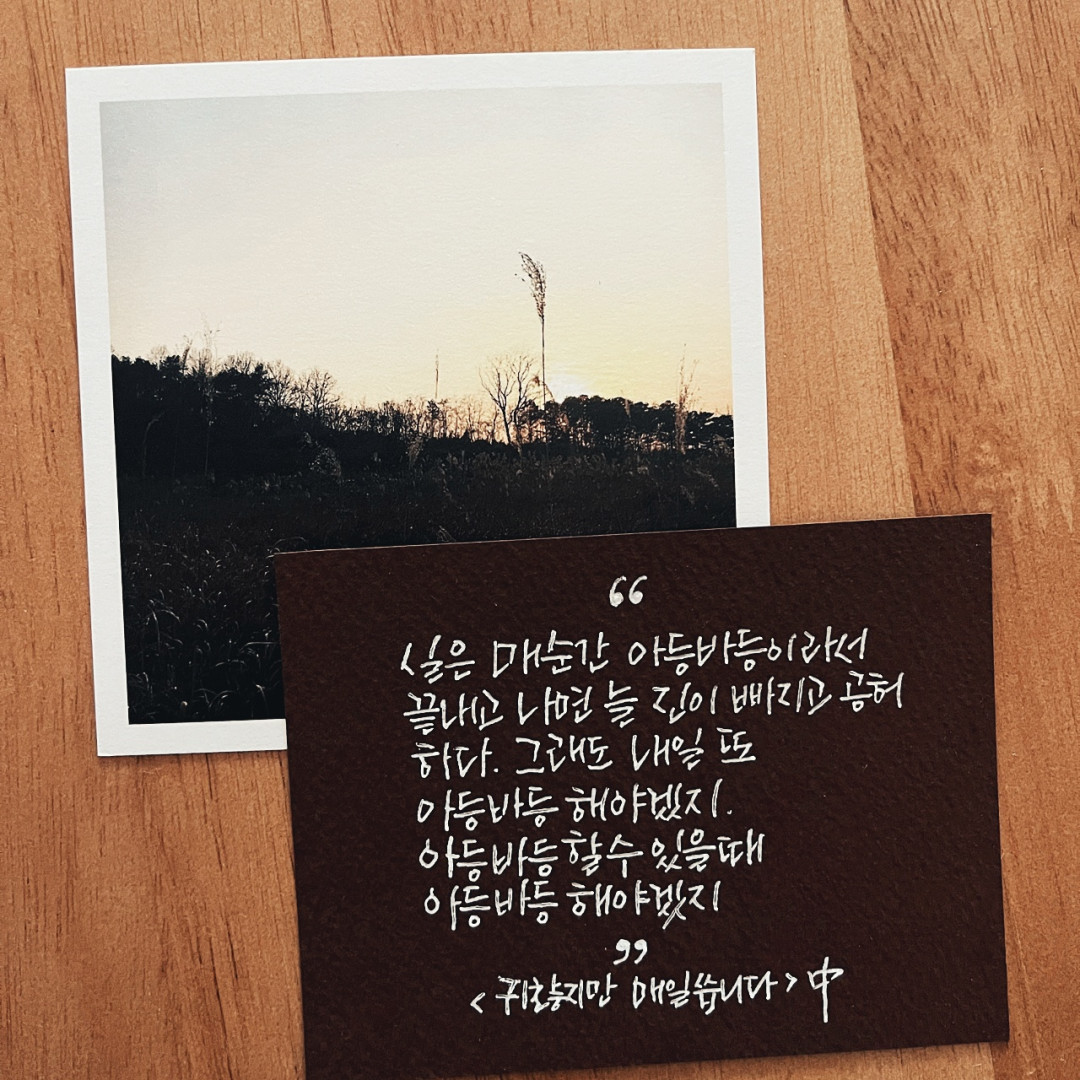 “
실은 매순간 아등바등이라서
끝내고 나면 늘 진이 빠지고 공허
하다. 그래도 내일 또
아등바등 해야겠지.
아등바등 할 수 있을 때
아등바등 해야겠지
”
<귀찮지만 매일씁니다> 中